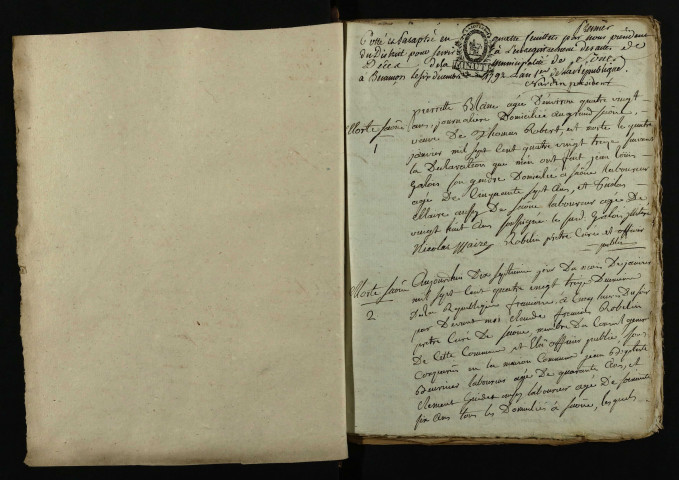 premier
Cotté et Paraphé en quatre feuillets par nous président
du District pour servir à l'enregistrement des actes de
Décès de la municipalité de Saone
à Besançon le six decembre 1792 l'an 1er de la République
président
Morte Saône
1
pierrette Blanc agée d'environ quatre vingt
ans, journaliere Domiciliée au grand Saône,
veuve De Thomas Robert, est morte le quatre
janvier mil sept cent quatre vingt treize suivant
la Declaration que m'en ont fait jean louis
son gendre Domicilié à Saône laboureur
agé De Cinquante sept ans, et
Maire aussy De Saône laboureur agé De
vingt huit ans soussignés
Nicolas Maire Robelin prêtre Curé et officier
public
Morte Saône
2
Aujourdhui Dix septieme jour Du mois De janvier
mil sept Cent quatre vingt treize
De la République francoise, à Cinq heures Du soir
par Devant moi Claude francois Robelin
prêtre Curé De Saône, membre Du Conseil general
De Cette Commune et Elu officier public, sont
Comparus en la maison Commune jean Baptiste
laboureur agé De quarante ans, et
Clement aussy laboureur agé De soixante
six ans tous les Domiciliés à Saône, lesquels